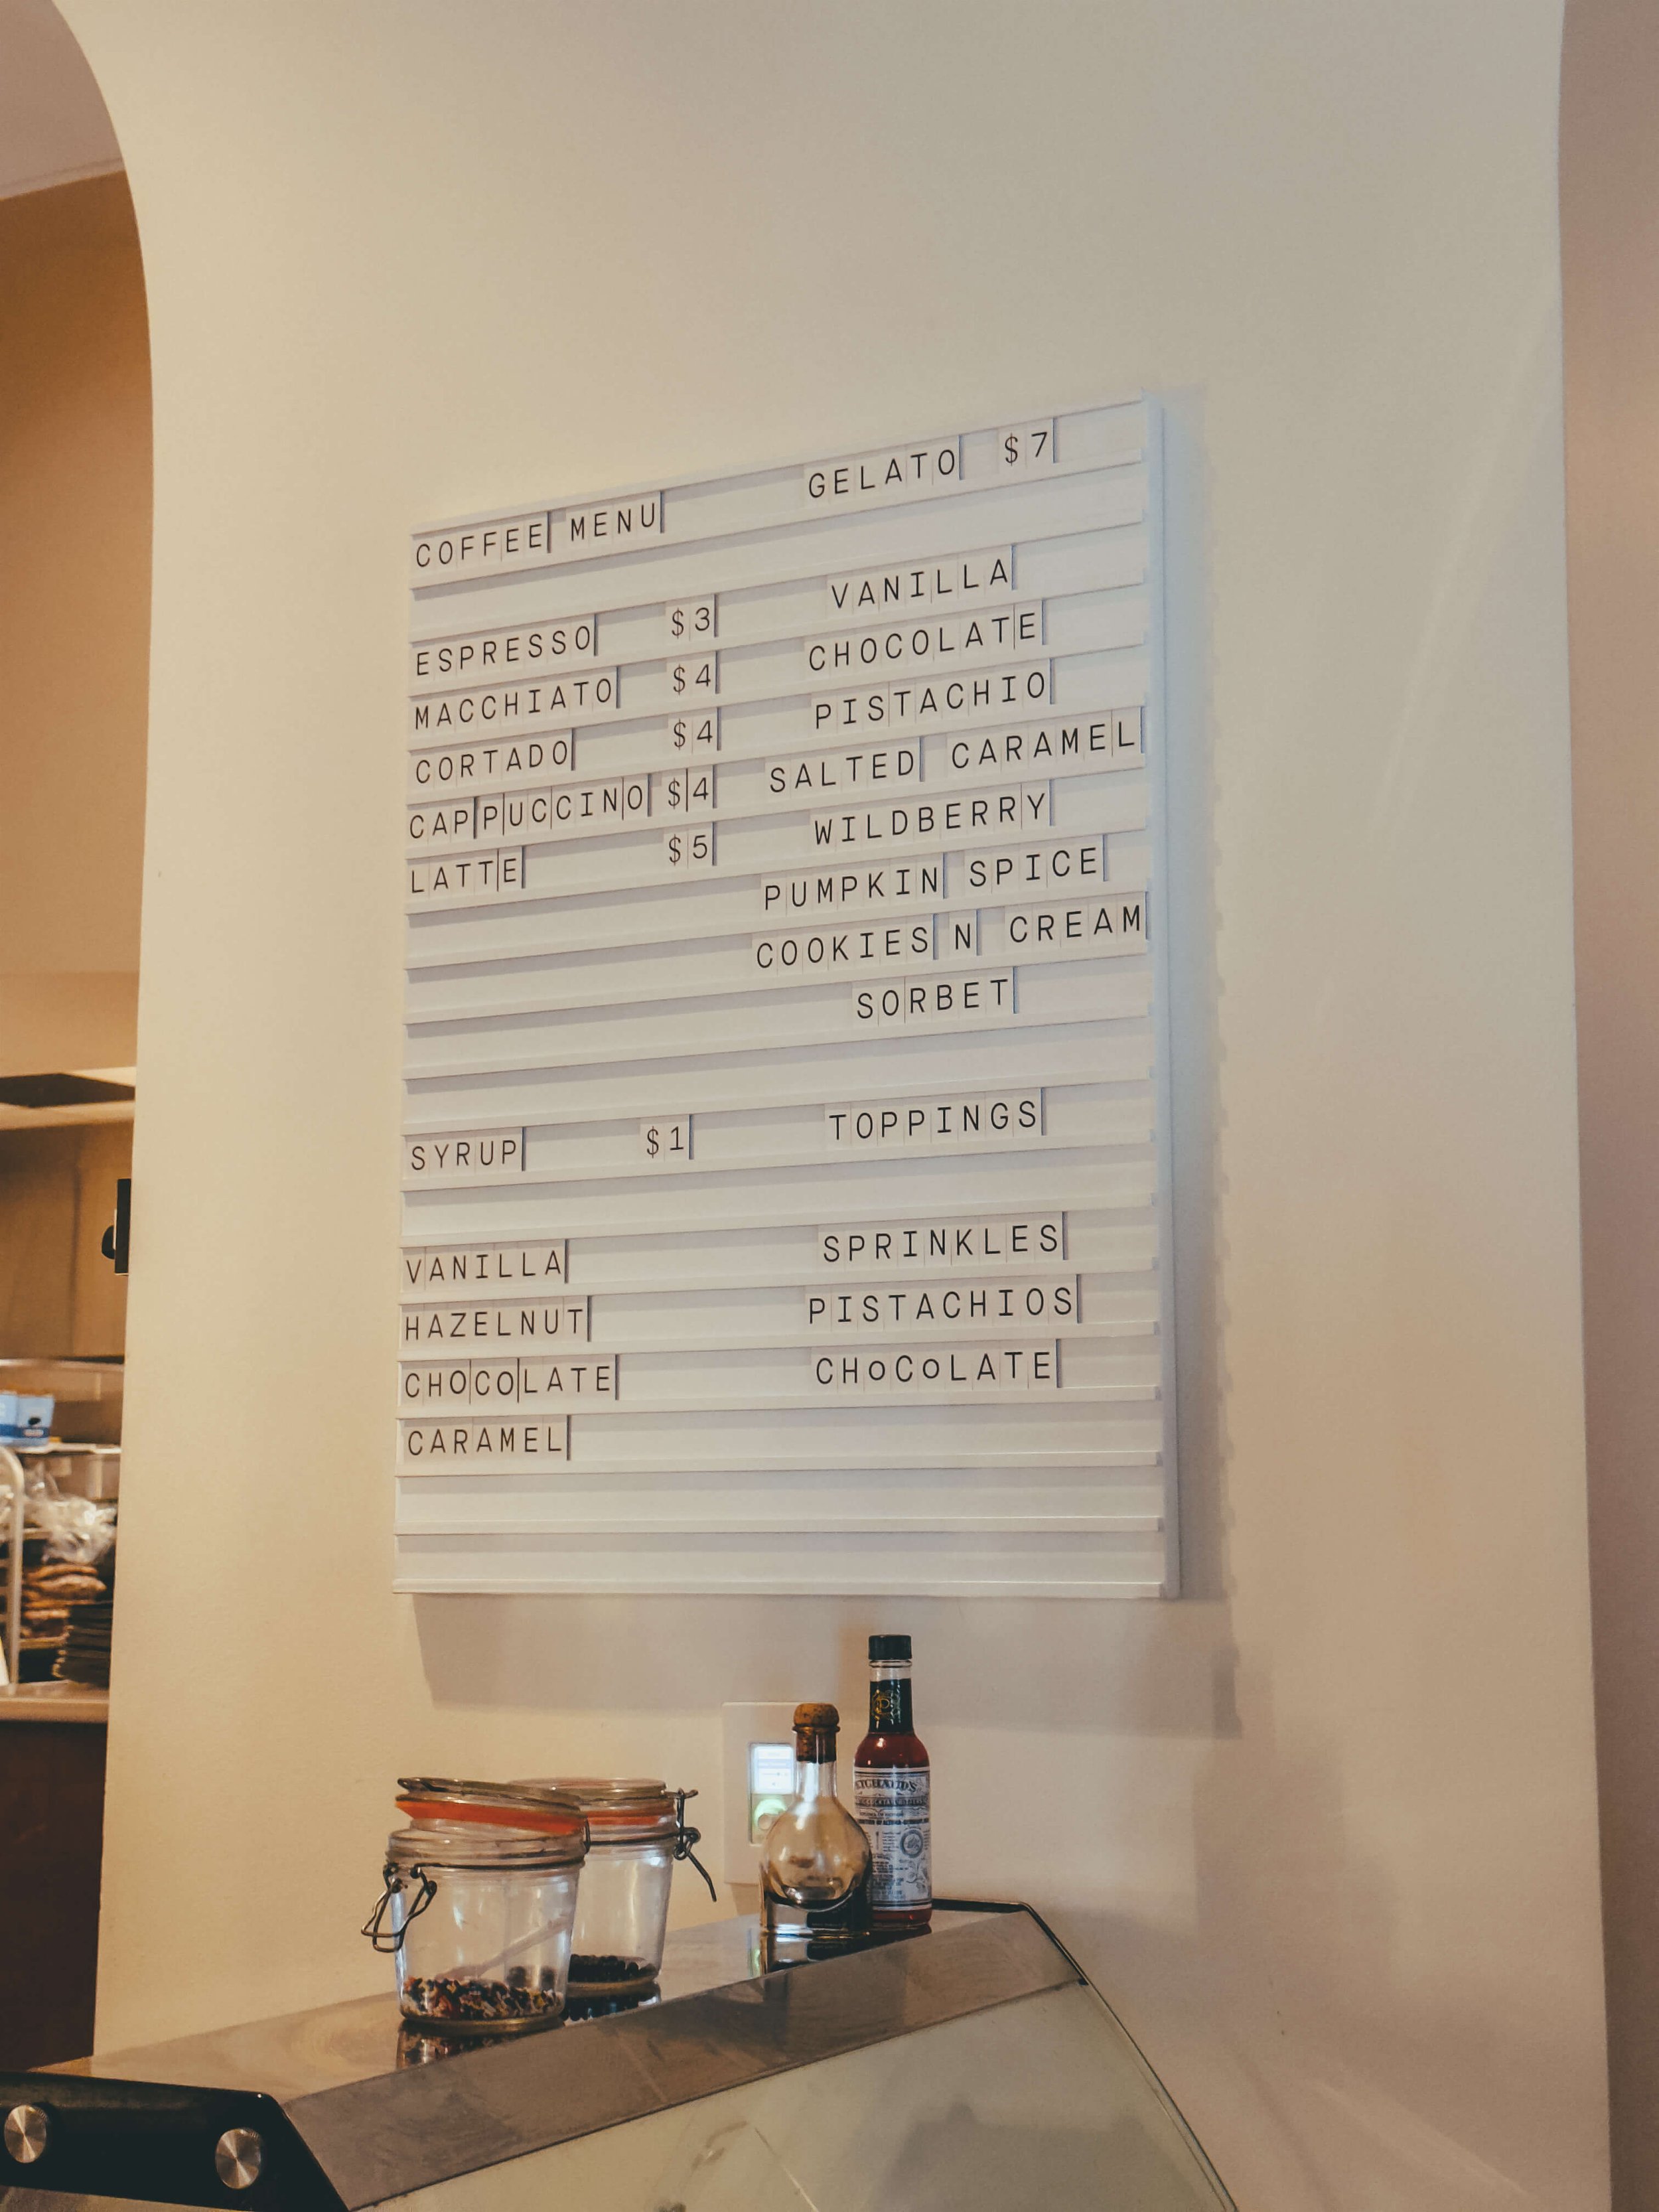 COFFEE MENU
ESPRESSO $3
MACCHIATO $4
CORTADO $4
CAPPUCCINO $4
LATTE $5
SYRUP $1
VANILLA
HAZELNUT
CHOCOLATE
CARAMEL
GELATO $7
VANILLA
CHOCOLATE
PISTACHIO
SALTED CARAMEL
WILDBERRY
PUMPKIN SPICE
COOKIES N CREAM
SORBET
TOPPINGS
SPRINKLES
PISTACHIOS
CHoCoLATE